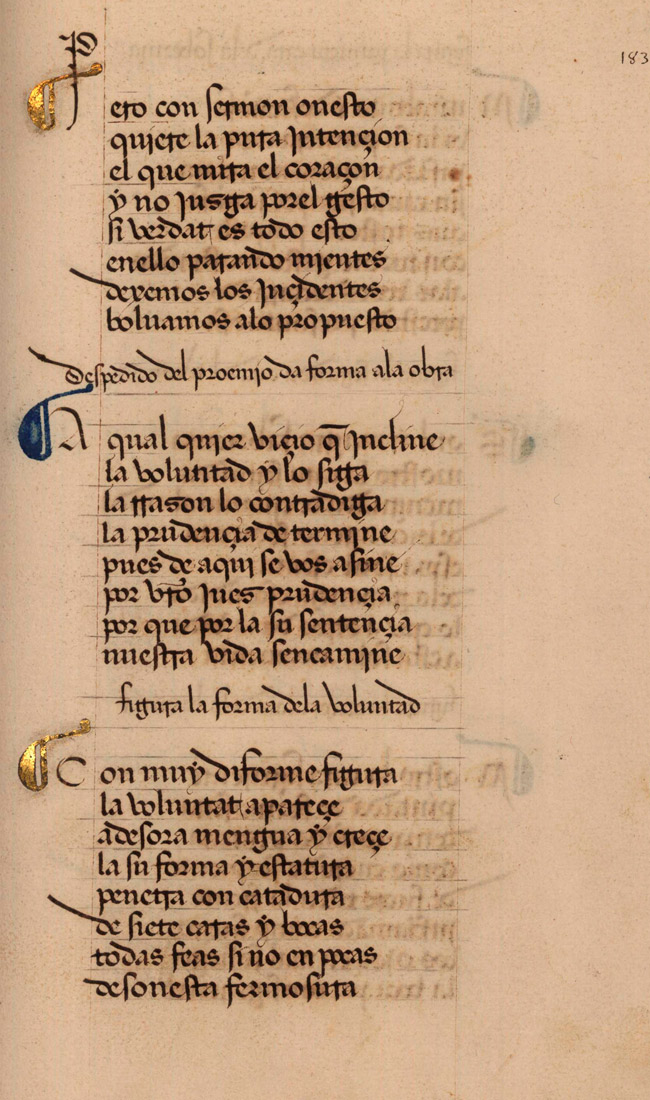 183
Pero con sermon onesto
quiere la pura Intençion
el que mira el coraçon
y no Jusga porel gesto
si verdat es todo esto
enello parando mientes
dexemos los Inçidentes
boluamos alo propuesto
despedido del proemio da forma ala obra
A qual quier viçio q̄ Incline
la voluntad y lo siga
la rrason lo contradiga
la prudençia determine
pues de aqui se vos afine
por vr̄o Jues prudençia
por que por la su sentençia
nuestra vida sencamine
figura la forma dela voluntad
Con muy diforme figura
la voluntat apareçe
adesora mengua y creçe
la su forma y estatura
penetra con catadura
de siete caras y bocas
todas feas si no en pocas
desonesta fermosura